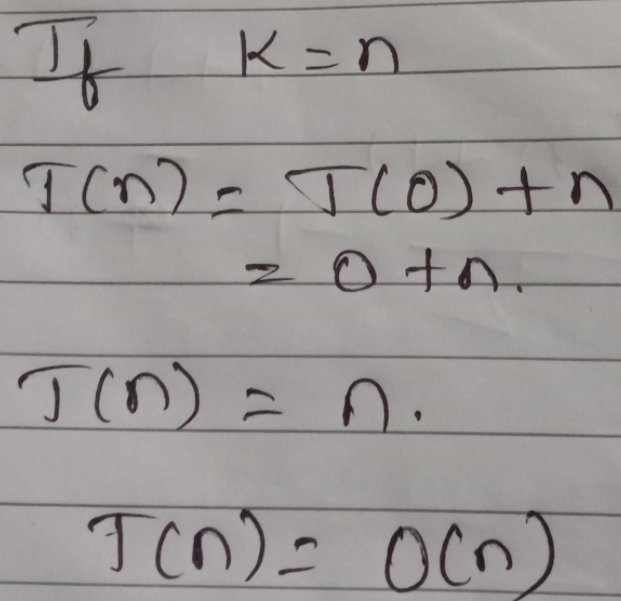 If K=n
T(n) = T(0) + n
= 0 + n.
T(n) = n.
T(n) = O(n)